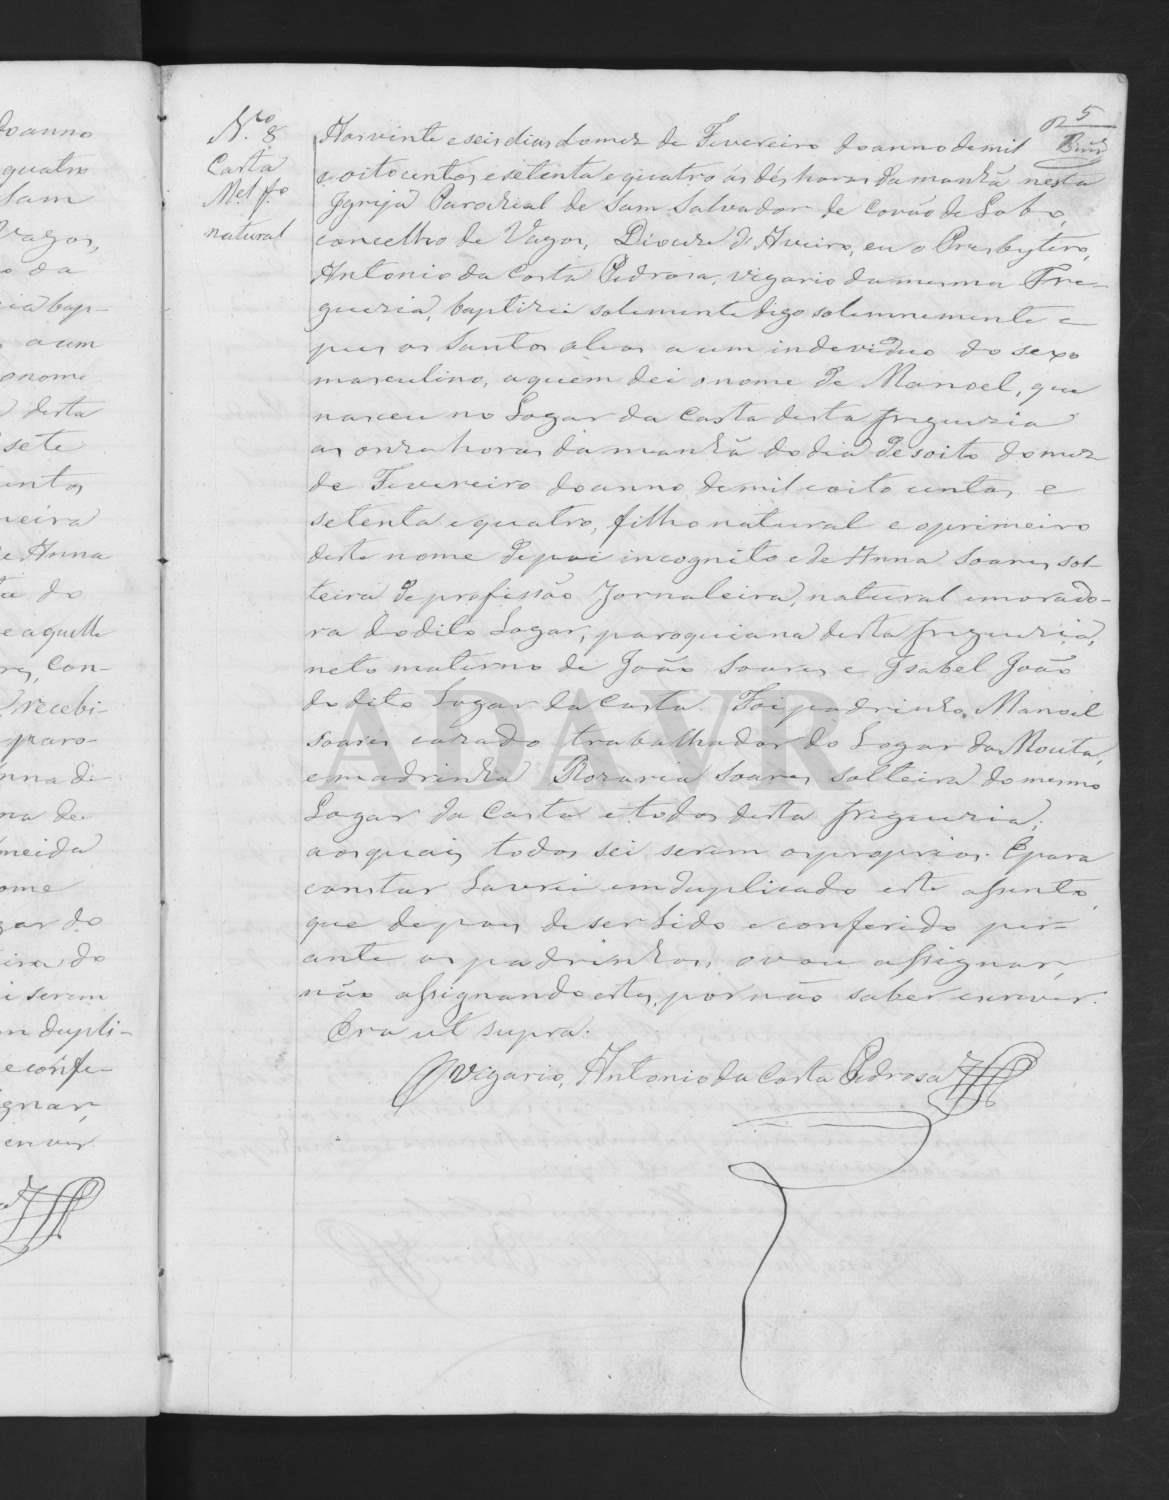 5
N.ro 8
Carta
Mel f.o
natural
Aos vinte e seis dias do mez de Fevereiro do anno de mil
e oito centos e setenta e quatro ás dés horas da manhã nesta
Igrija Parochial de Sam Salvador de Covão de Lobo,
concelho de Vagos, Diocese de Aveiro, eu o Presbytero,
Antonio da Costa Pedrosa, vigario da mesma Fre-
guezia, baptizei solemente digo solemnemente e
pus os Santos oleos a um individuo do sexo
masculino, a quem dei o nome de Manoel, que
nasceu no Logar da Carta desta freguezia
as onze horas da manhã do dia desoito do mez
de Fevereiro do anno de mil e oito centos e
setenta e quatro, filho natural e o primeiro
deste nome de pai incognito e de Anna Soares, sol-
teira de profissão Jornaleira, natural e morado-
ra do dito Logar, paroquiana desta freguezia,
neto materno de João Soares e Isabel João
do dito Logar da Carta. Foi padrinho, Manoel
Soares cazado trabalhador do Logar da Mouta,
e madrinha Rozaria Soares, solteira do mesmo
Logar da Carta e todos desta freguezia;
aos quais todos sei serem os proprios. E para
constar Lavrei em duplicado este assento,
que depois de ser Lido e conferido per-
ante os padrinhos, o vou assignar,
não assignando estes, por não saber escrever.
Era ut supra.
O Vigario, Antonio da Costa Pedrosa
ADAVR
do anno
quatro
Sam
Vagos,
o da
cia bap-
a um
o nome
desta
sete
entos
neira
e Anna
ta do
e aquelle
res, Con-
recebi-
paro-
nna di
na de
meida
ome
gar do
eira do
i serem
m dupli-
e confe-
gnar,
crever